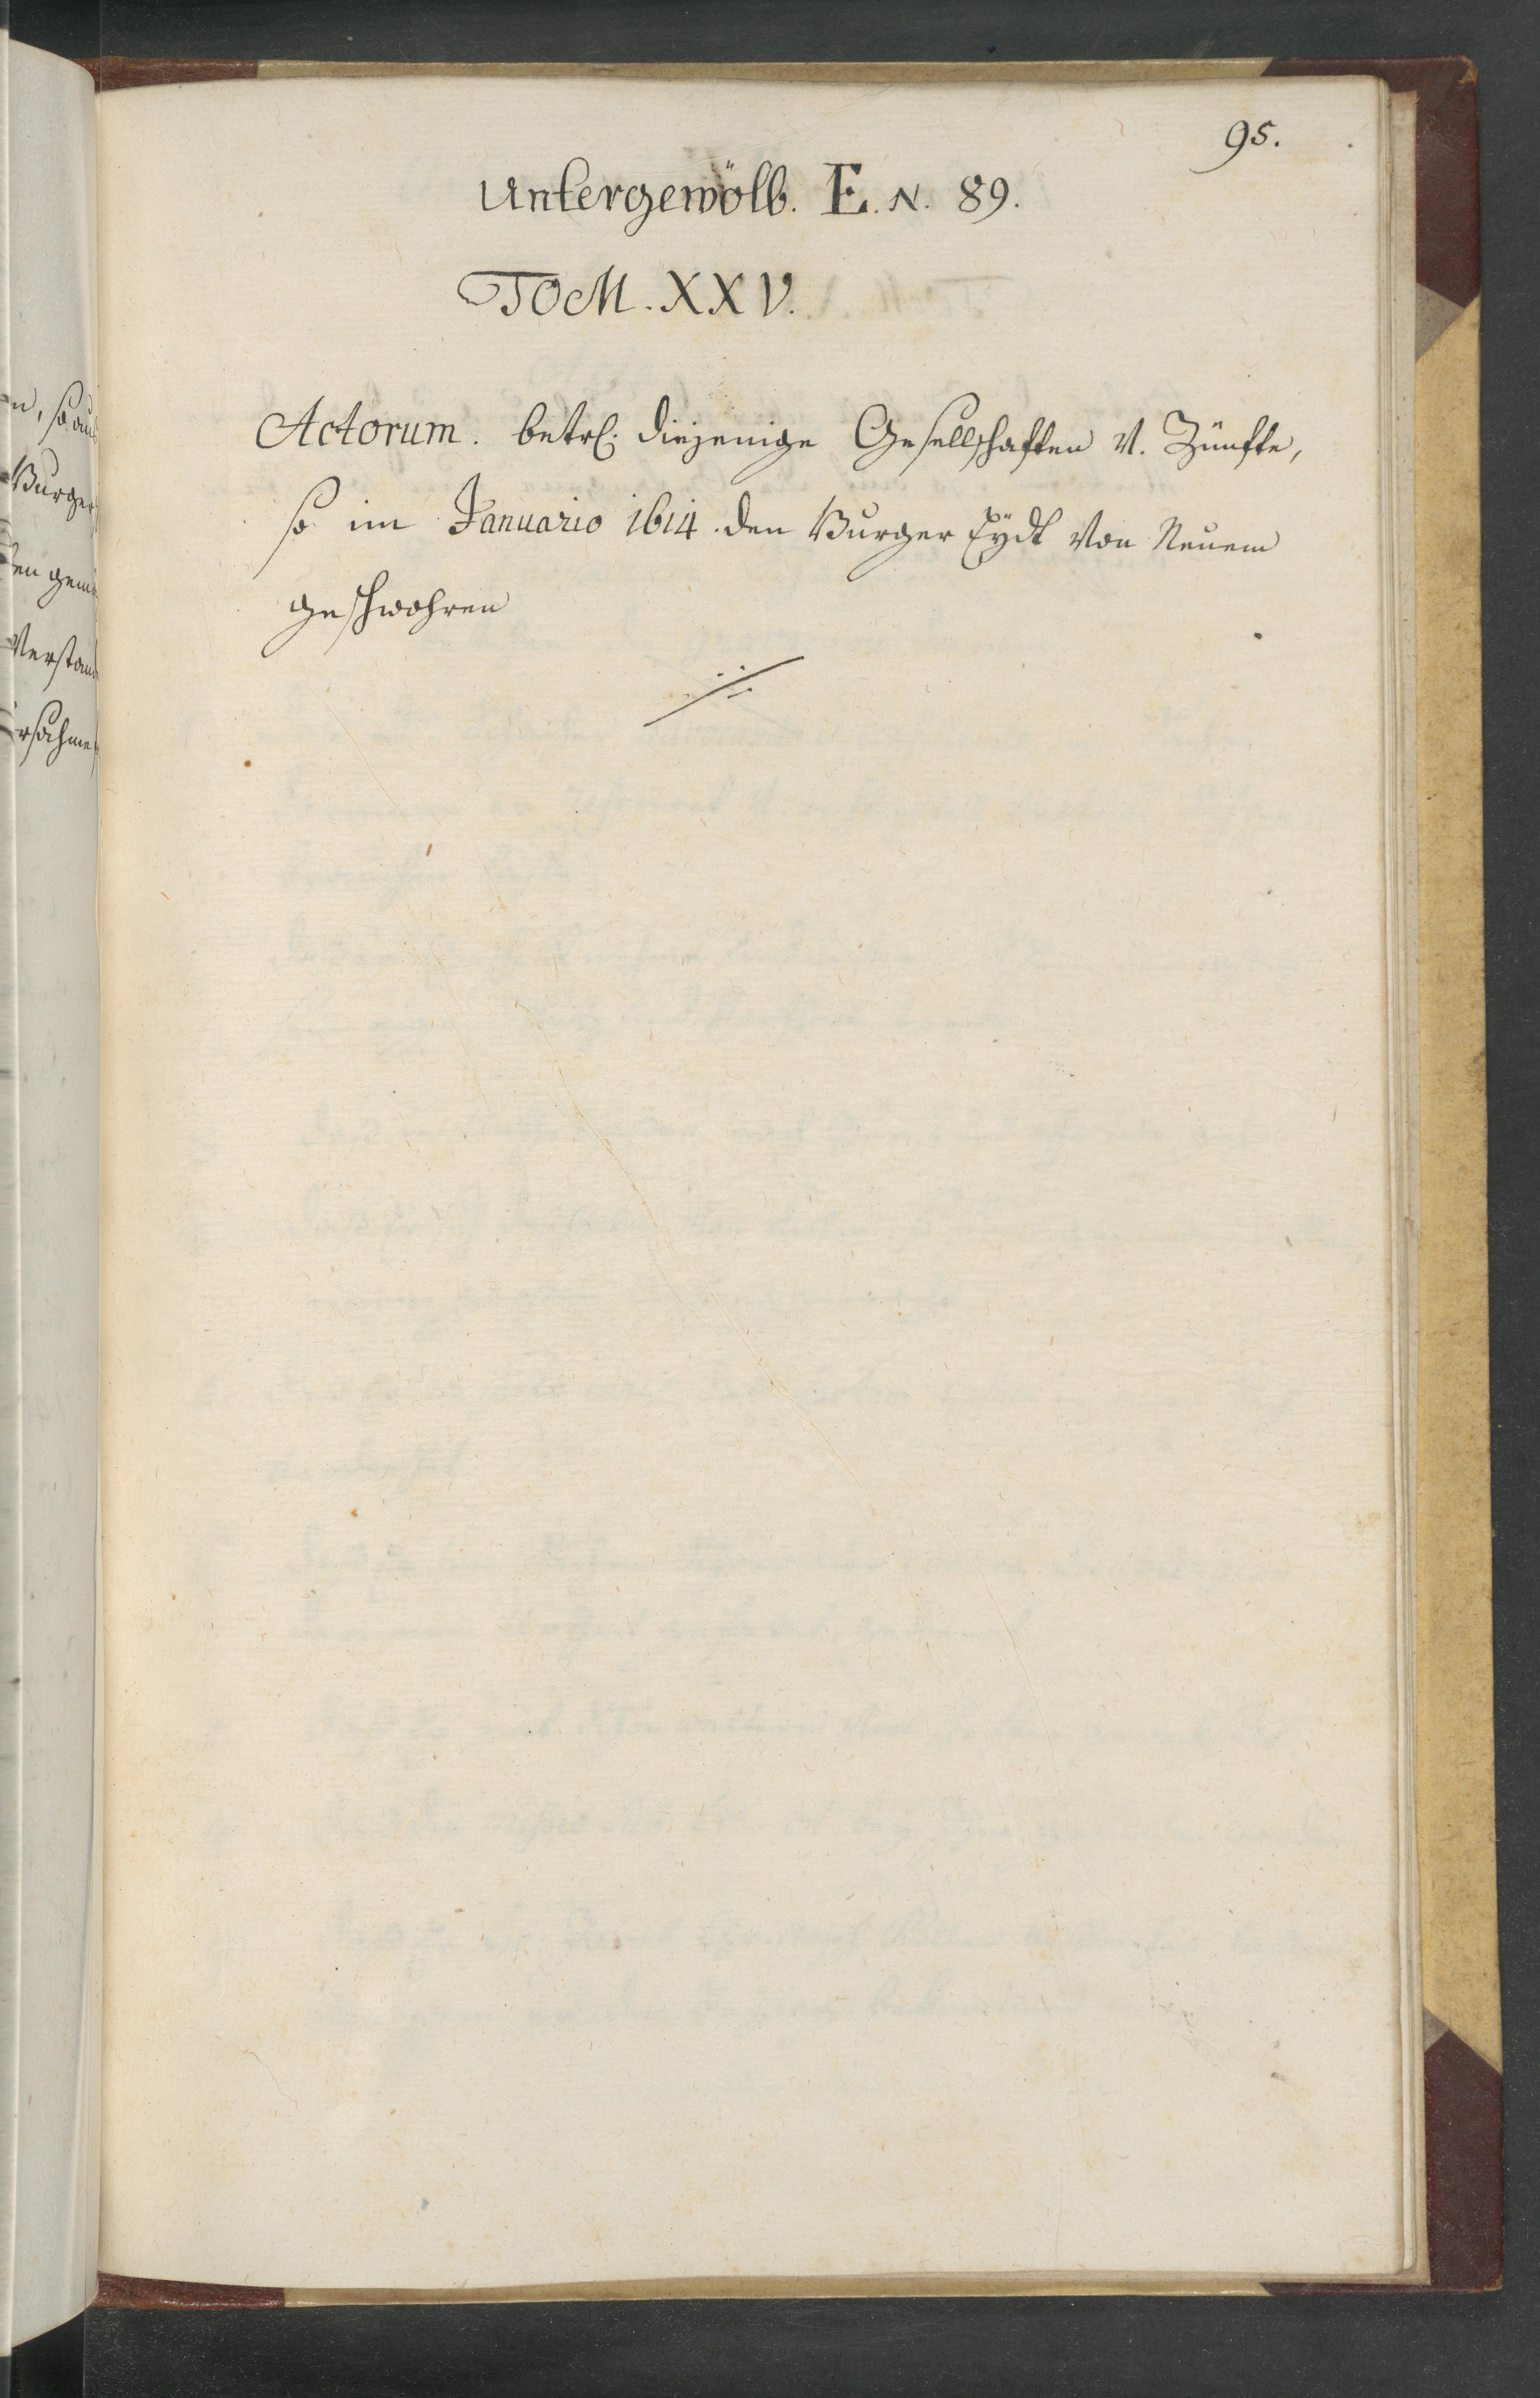 95.
Untergewölb. E. N. 89.
TOM. XXV.
Actorum. betrl. diejenige Gesellschaften V. Zünfte,
so im Januario 1614. den Burger Eÿdt Von Neuem
geschwohren
Burger